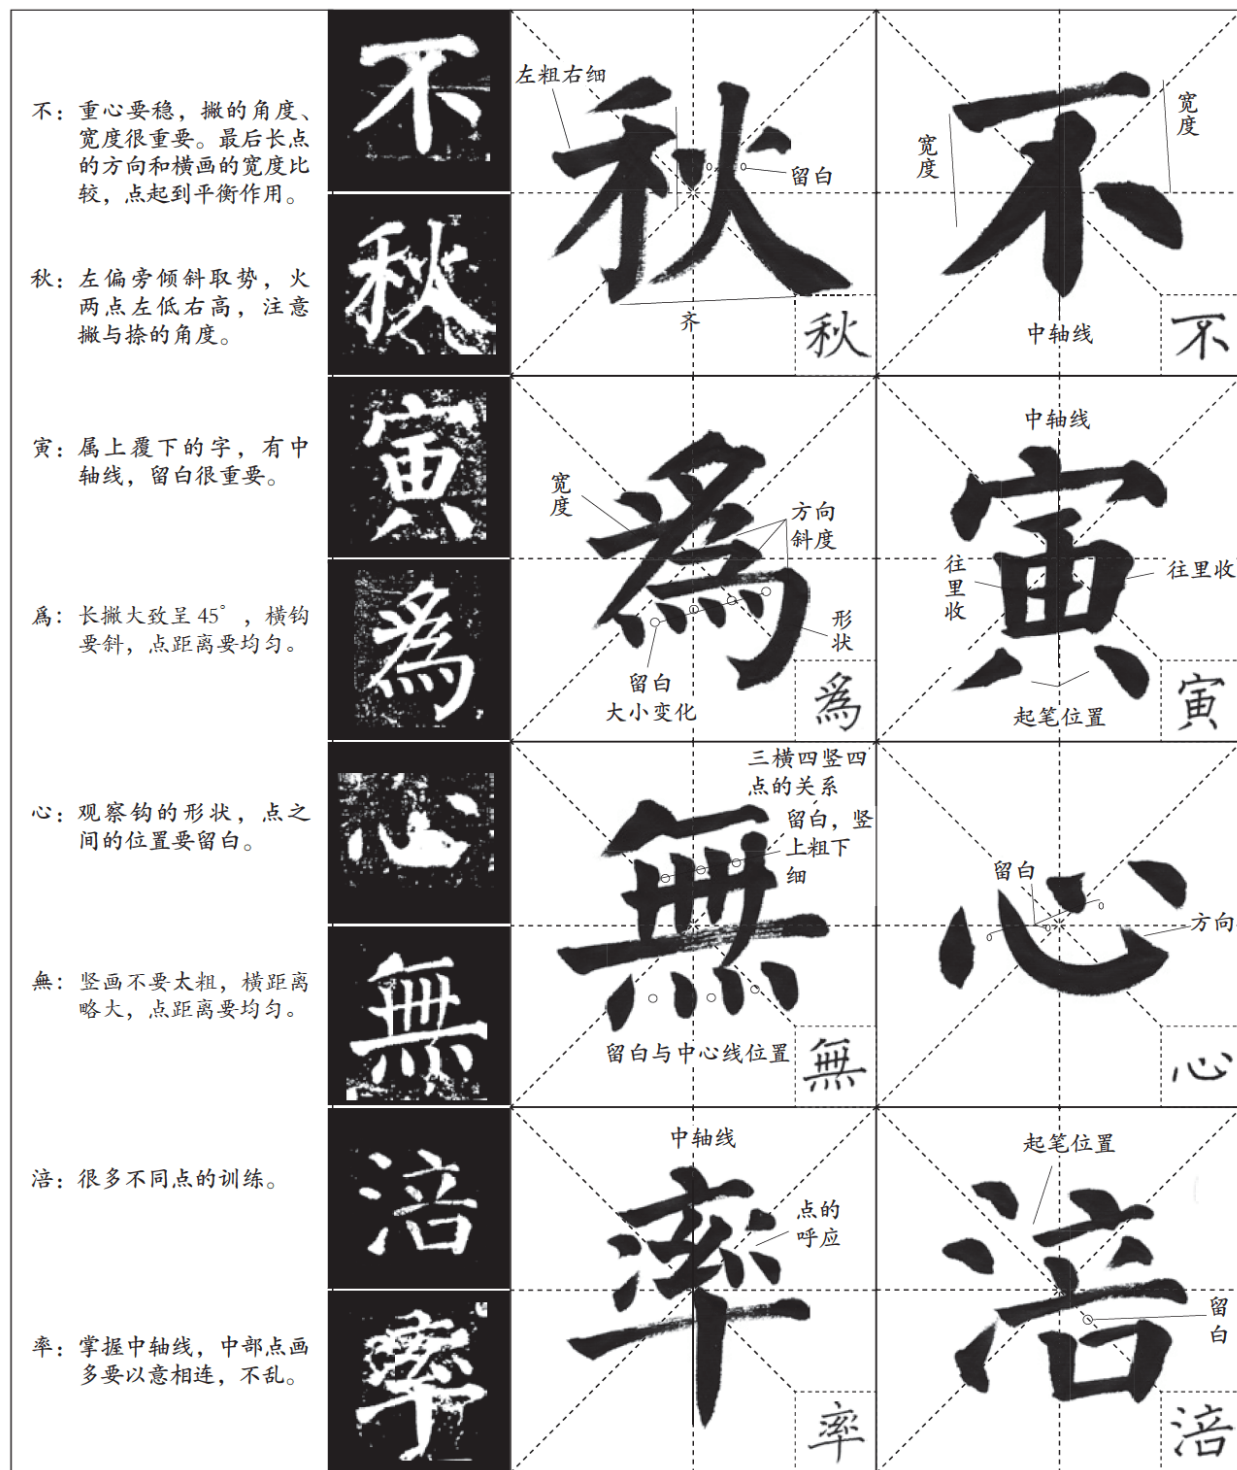 不：重心要稳，撇的角度、
宽度很重要。最后长点
的方向和横画的宽度比
较，点起到平衡作用。
秋：左偏旁倾斜取势，火
两点左低右高，注意
撇与捺的角度。
寅：属上覆下的字，有中
轴线，留白很重要。
爲：长撇大致呈 45°，横钩
要斜，点距离要均匀。
心：观察钩的形状，点之
间的位置要留白。
無：竖画不要太粗，横距离
略大，点距离要均匀。
涪：很多不同点的训练。
率：掌握中轴线，中部点画
多要以意相连，不乱。
不
秋
寅
爲
心
無
涪
率
左粗右细
秋
留白
齐
秋
宽度
不
宽度
中轴线
不
宽度
爲
方向
斜度
形状
留白
大小变化
爲
中轴线
寅
往里收
往里收
起笔位置
寅
三横四竖四
点的关系
留白，竖
上粗下
细
無
留白与中心线位置
無
留白
心
方向
心
中轴线
率
点的
呼应
率
起笔位置
涪
留白
涪